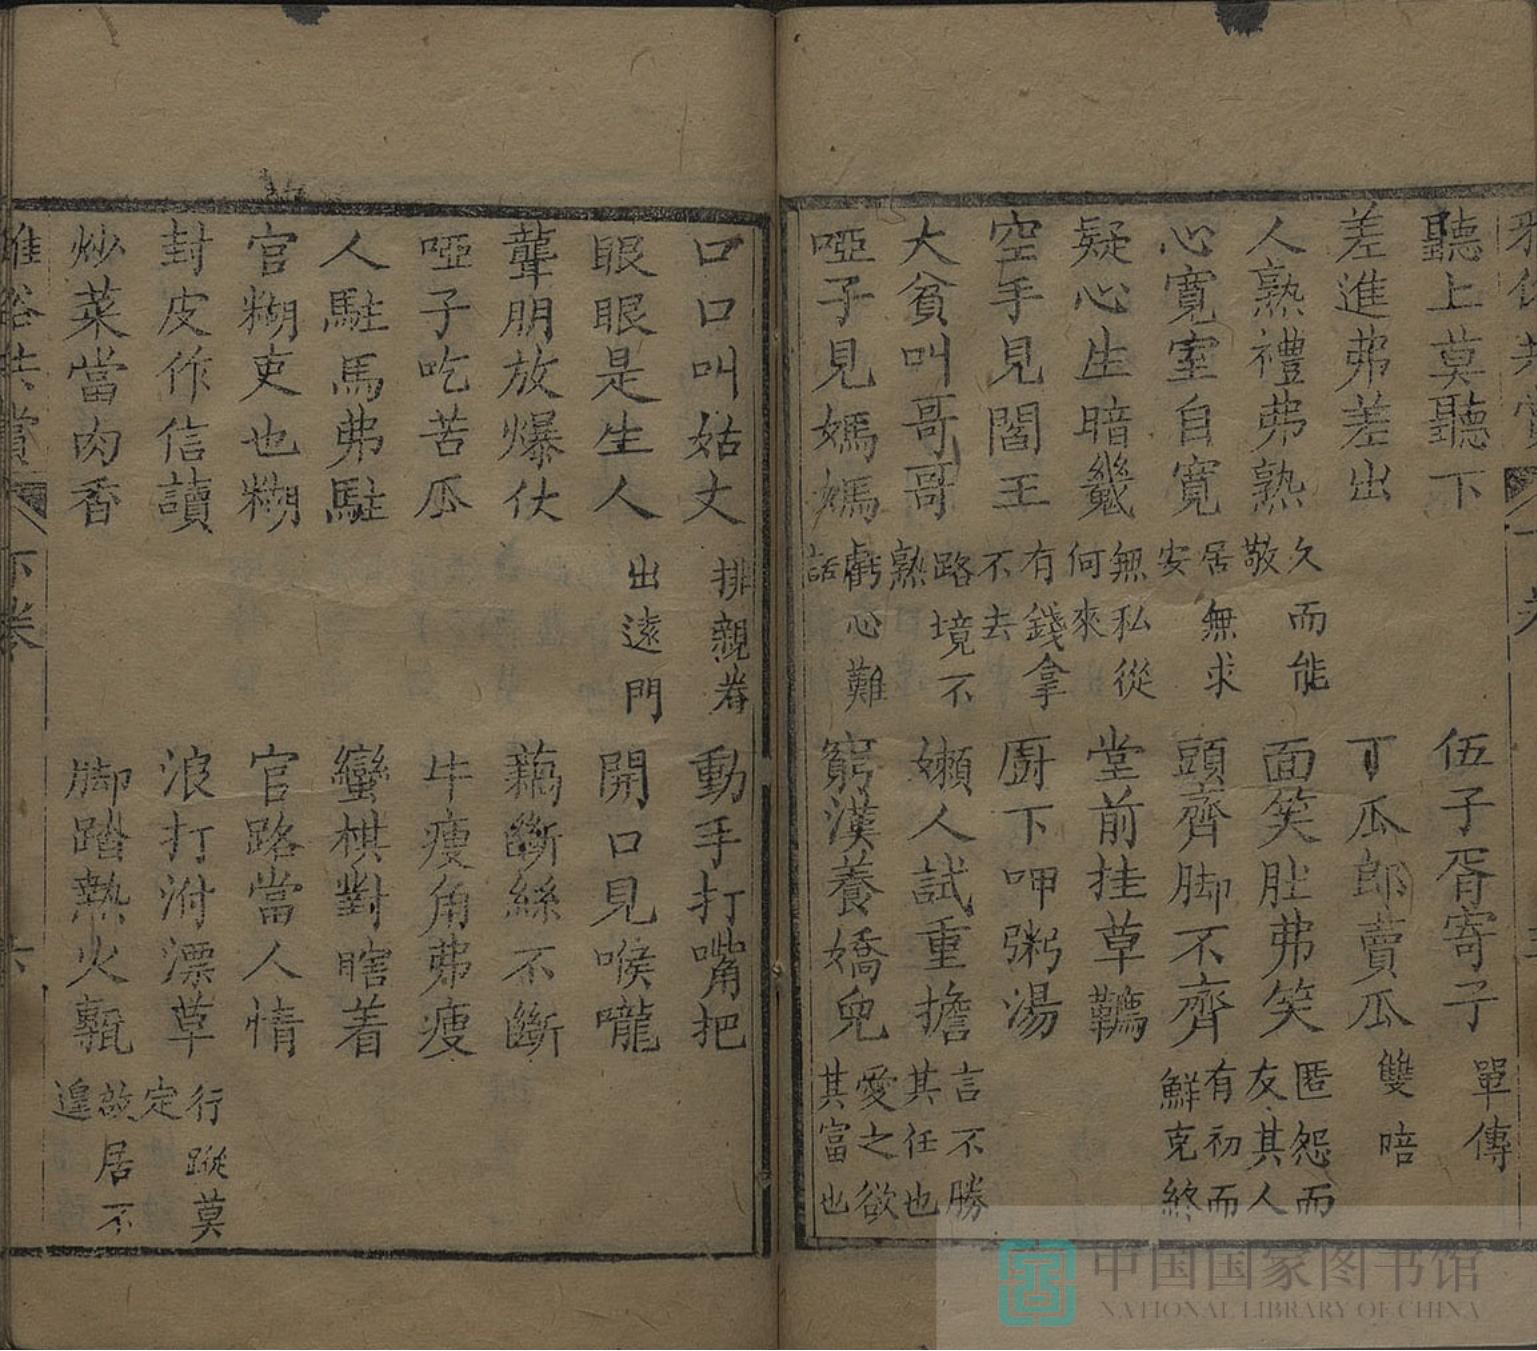 聽上莫聽下 伍子胥寄子 單傳
差進弗差出 丁瓜郎賣瓜 雙唔
人熟禮弗熟 久而能敬 面笑肚弗笑 匿怨而友其人
心寬室自寬 居無求安 頭齊脚不齊 有初而鮮克終
疑心生暗鬼 無私從何來 堂前挂草鞽
空手見閻王 有錢拿不去 厨下呷粥湯
大貧叫哥哥 路境不熟 嬾人試重擔 言不勝其任也
啞子見媽媽 虧心難話 窮漢養嬌兒 愛之欲其富也
口口叫姑丈 排親眷 動手打嘴把
眼眼是生人 出遠門 開口見喉嚨
聾朋放爆仗 藕斷絲不斷
啞子吃苦瓜 牛瘦角弗瘦
人駐馬弗駐 蠻棋對瞎着
官糊吏也糊 官路當人情
封皮作信讀 浪打泭漂草 行蹤莫定
炒菜當肉香 脚踏熱火甎 故居不遑
雅俗共賞 下卷 六
中国国家图书馆
NATIONAL LIBRARY OF CHINA